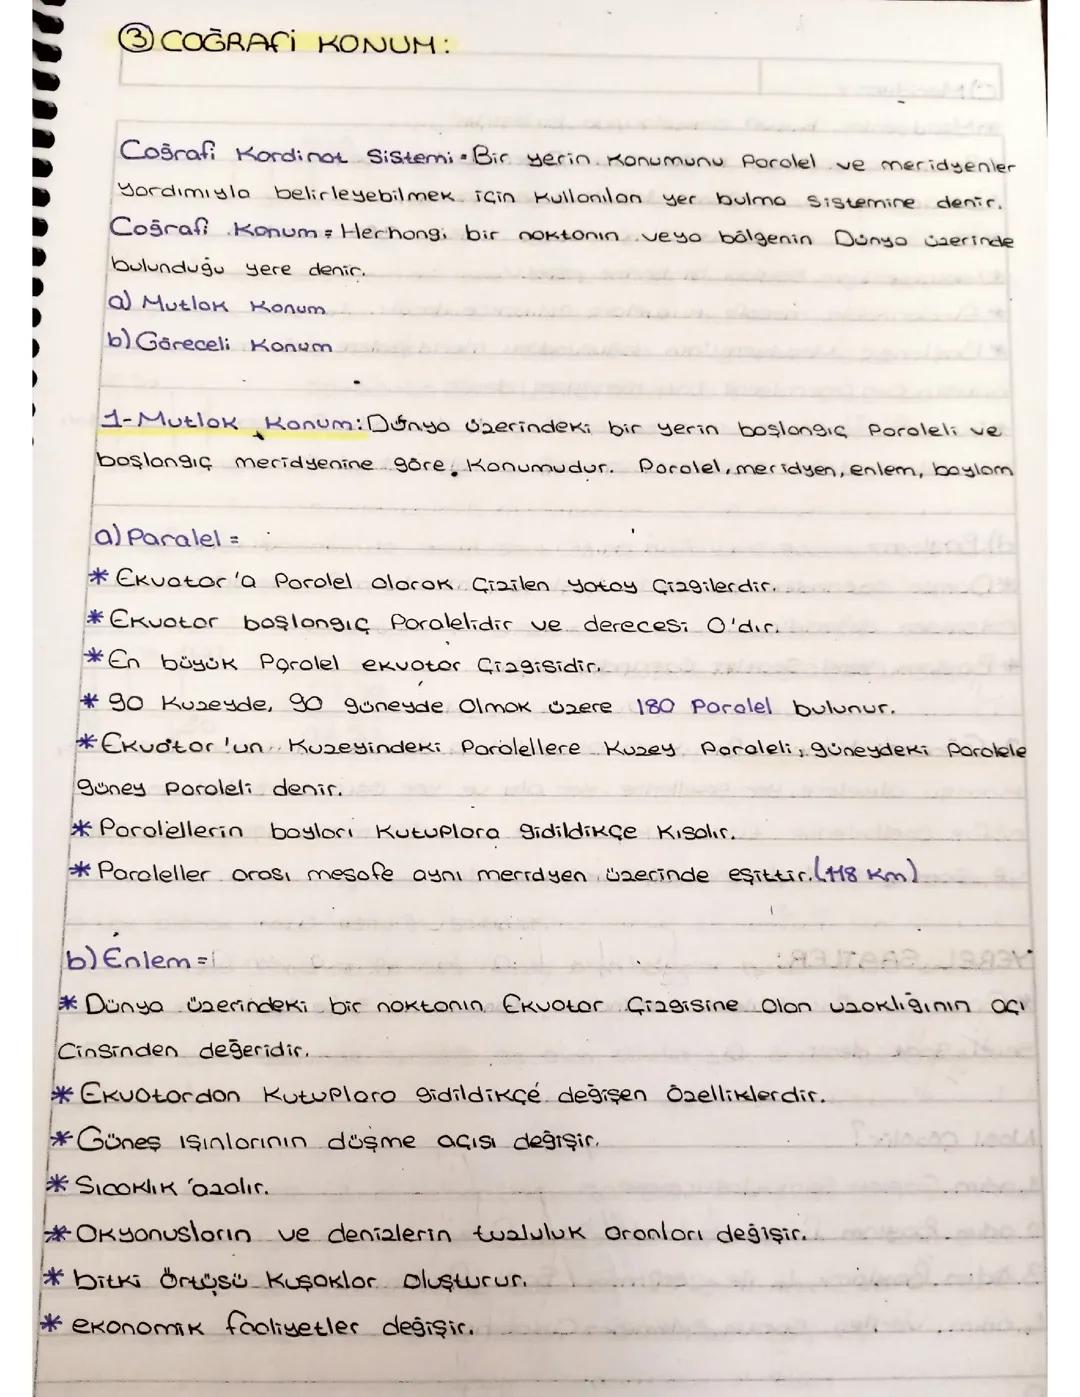 ③ COĞRAFİ KONUM:
Coğrafi Kordinat Sistemi = Bir yerin Konumunu Paralel ve meridyenler
yardımıyla belirleyebilmek için Kullanılan yer bulma Sistemine denir.
Coğrafi Konum = Herhangi bir noktanın veya bölgenin Dünya üzerinde
bulunduğu yere denir.
a) Mutlak Konum
b) Göreceli Konum
1-Mutlak Konum: Dünya üzerindeki bir yerin başlangıç Paraleli ve
başlangıç meridyenine göre Konumudur. Paralel, meridyen, enlem, boylam
a) Paralel =
* Ekvator'a Paralel olarak Çizilen yatay Çizgilerdir.
* Ekvator başlangıç Paralelidir ve derecesi 0'dır.
* En büyük Paralel ekvator Çizgisidir.
* 90 Kuzeyde, 90 güneyde Olmak üzere 180 Paralel bulunur.
* Ekvator'un Kuzeyindeki Paralellere Kuzey Paraleli, güneydeki Paralele
güney Paraleli denir.
* Paralellerin boyları Kutuplara gidildikçe Kısalır.
* Paraleller arası mesafe aynı merıdyen üzerinde eşittir. (118 Km)
b) Enlem =
* Dünya üzerindeki bir noktanın Ekvator Çizgisine Olan uzaklığının açı
Cinsinden değeridir.
* Ekvatordan Kutuplara gidildikçe değişen Özelliklerdir.
* Güneş ışınlarının düşme açısı değişir.
* Sıcaklık azalır.
* Okyanusların ve denizlerin tuzluluk Oranları değişir.
* bitki Örtüsü Kuşaklar Oluşturur.
* ekonomik faaliyetler değişir.